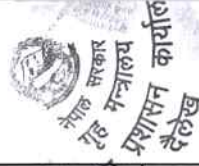 नेपाल सरकार
गृह मन्त्रालय
प्रशासन कार्यालय
दैलेख